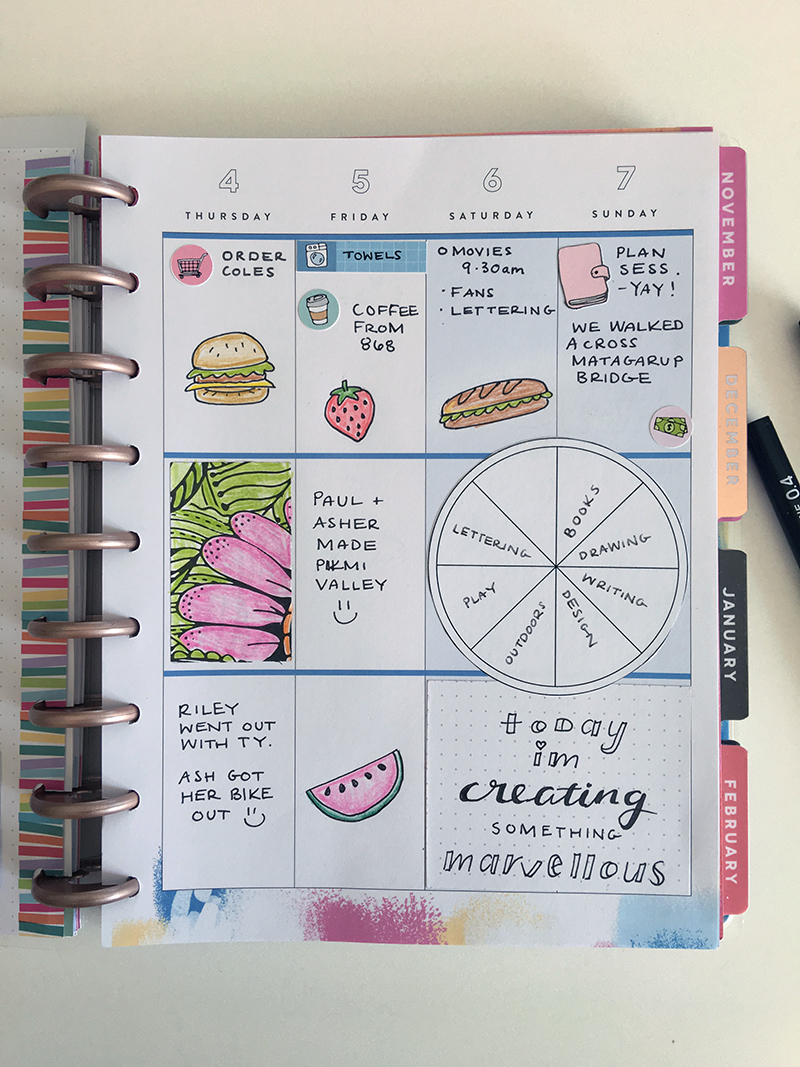 4
THURSDAY
5
FRIDAY
6
SATURDAY
7
SUNDAY
ORDER
COLES
TOWELS
COFFEE
FROM
868
MOVIES
9.30am
· FANS
· LETTERING
PLAN
SESS.
-YAY!
WE WALKED
ACROSS
MATAGARUP
BRIDGE
PAUL +
ASHER
MADE
PIKMI
VALLEY
LETTERING
BOOKS
DRAWING
WRITING
DESIGN
OUTDOORS
PLAY
RILEY
WENT OUT
WITH TY.
ASH GOT
HER BIKE
OUT
today
im
creating
SOMETHING
marvellous
NOVEMBER
DECEMBER
JANUARY
FEBRUARY
0.4